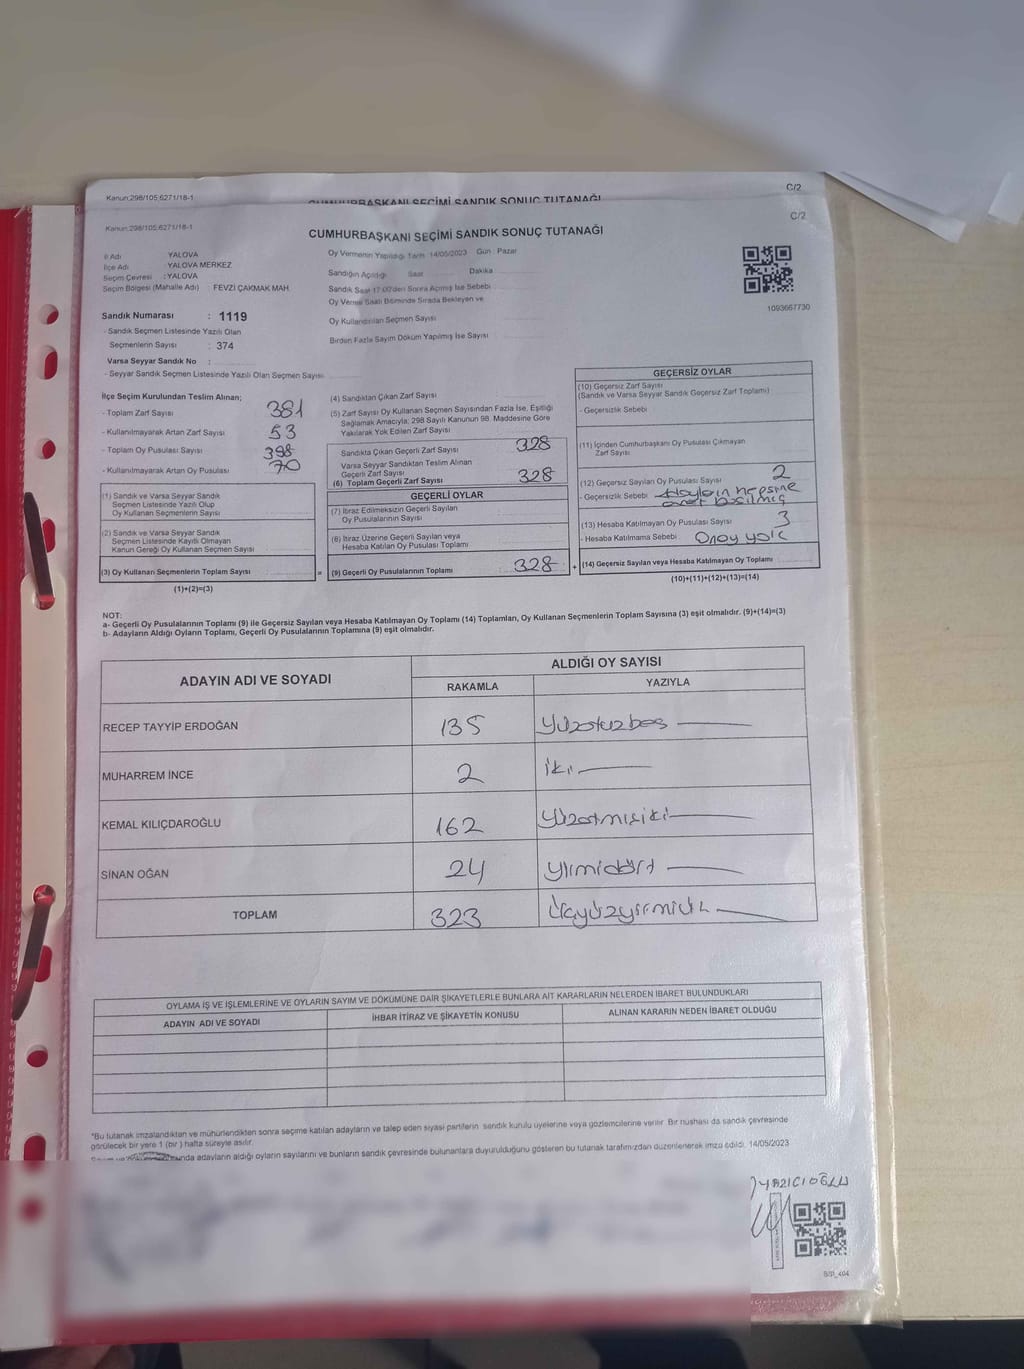 Kanun;298/105;6271/18-1
C/2
CUMHURBAŞKANI SEÇİMİ SANDIK SONUÇ TUTANAĞI
C/2
Kanun;298/105;6271/18-1
CUMHURBAŞKANI SEÇİMİ SANDIK SONUÇ TUTANAĞI
İl Adı YALOVA
İlçe Adı YALOVA MERKEZ
Seçim Çevresi : YALOVA
Seçim Bölgesi (Mahalle Adı) : FEVZİ ÇAKMAK MAH.
Oy Vermenin Yapıldığı Tarih 14/05/2023 Gün Pazar
Sandığın Açıldığı Saat Dakika
Sandık Saat 17:00'den Sonra Açılmış İse Sebebi
Oy Verme Saati Bitiminde Sırada Bekleyen ve
Oy Kullandırılan Seçmen Sayısı
Birden Fazla Sayım Döküm Yapılmış İse Sayısı
1093667730
Sandık Numarası : 1119
- Sandık Seçmen Listesinde Yazılı Olan
Seçmenlerin Sayısı : 374
Varsa Seyyar Sandık No :
- Seyyar Sandık Seçmen Listesinde Yazılı Olan Seçmen Sayısı
İlçe Seçim Kurulundan Teslim Alınan;
- Toplam Zarf Sayısı 381
- Kullanılmayarak Artan Zarf Sayısı 53
- Toplam Oy Pusulası Sayısı 398
- Kullanılmayarak Artan Oy Pusulası 70
(1) Sandık ve Varsa Seyyar Sandık
Seçmen Listesinde Yazılı Olup
Oy Kullanan Seçmenlerin Sayısı
(2) Sandık ve Varsa Seyyar Sandık
Seçmen Listesinde Kayıtlı Olmayan
Kanun Gereği Oy Kullanan Seçmen Sayısı
(3) Oy Kullanan Seçmenlerin Toplam Sayısı
(1)+(2)=(3)
(4) Sandıktan Çıkan Zarf Sayısı
(5) Zarf Sayısı Oy Kullanan Seçmen Sayısından Fazla İse, Eşitliği
Sağlamak Amacıyla, 298 Sayılı Kanunun 98. Maddesine Göre
Yakılarak Yok Edilen Zarf Sayısı
Sandıkta Çıkan Geçerli Zarf Sayısı 328
Varsa Seyyar Sandıktan Teslim Alınan
Geçerli Zarf Sayısı
(6) Toplam Geçerli Zarf Sayısı 328
GEÇERLİ OYLAR
(7) İtiraz Edilmeksizin Geçerli Sayılan
Oy Pusulalarının Sayısı
(8) İtiraz Üzerine Geçerli Sayılan veya
Hesaba Katılan Oy Pusulası Toplamı
= (9) Geçerli Oy Pusulalarının Toplamı 328
GEÇERSİZ OYLAR
(10) Geçersiz Zarf Sayısı
(Sandık ve Varsa Seyyar Sandık Geçersiz Zarf Toplamı)
- Geçersizlik Sebebi
(11) İçinden Cumhurbaşkanı Oy Pusulası Çıkmayan
Zarf Sayısı
(12) Geçersiz Sayılan Oy Pusulası Sayısı 2
- Geçersizlik Sebebi Adayların hepsine
evet basılmış
(13) Hesaba Katılmayan Oy Pusulası Sayısı 3
- Hesaba Katılmama Sebebi Onay yok
+ (14) Geçersiz Sayılan veya Hesaba Katılmayan Oy Toplamı
(10)+(11)+(12)+(13)=(14)
NOT:
a- Geçerli Oy Pusulalarının Toplamı (9) ile Geçersiz Sayılan veya Hesaba Katılmayan Oy Toplamı (14) Toplamları, Oy Kullanan Seçmenlerin Toplam Sayısına (3) eşit olmalıdır. (9)+(14)=(3)
b- Adayların Aldığı Oyların Toplamı, Geçerli Oy Pusulalarının Toplamına (9) eşit olmalıdır.
ADAYIN ADI VE SOYADI
ALDIĞI OY SAYISI
RAKAMLA YAZIYLA
RECEP TAYYİP ERDOĞAN 135 Yüzotuzbeş
MUHARREM İNCE 2 iki
KEMAL KILIÇDAROĞLU 162 Yüzatmışiki
SİNAN OĞAN 24 Yirmidört
TOPLAM 323 Üçyüzyirmiüç
OYLAMA İŞ VE İŞLEMLERİNE VE OYLARIN SAYIM VE DÖKÜMÜNE DAİR ŞİKAYETLERLE BUNLARA AİT KARARLARIN NELERDEN İBARET BULUNDUKLARI
ADAYIN ADI VE SOYADI İHBAR İTİRAZ VE ŞİKAYETİN KONUSU ALINAN KARARIN NEDEN İBARET OLDUĞU
*Bu tutanak imzalandıktan ve mühürlendikten sonra seçime katılan adayların ve talep eden siyasi partilerin sandık kurulu üyelerine veya gözlemcilerine verilir. Bir nüshası da sandık çevresinde
görülecek bir yere 1 (bir) hafta süreyle asılır.
adayların aldığı oyların sayılarını ve bunların sandık çevresinde bulunanlara duyurulduğunu gösteren bu tutanak tarafımızdan düzenlenerek imza edildi. 14/05/2023
YAZICIOĞLU